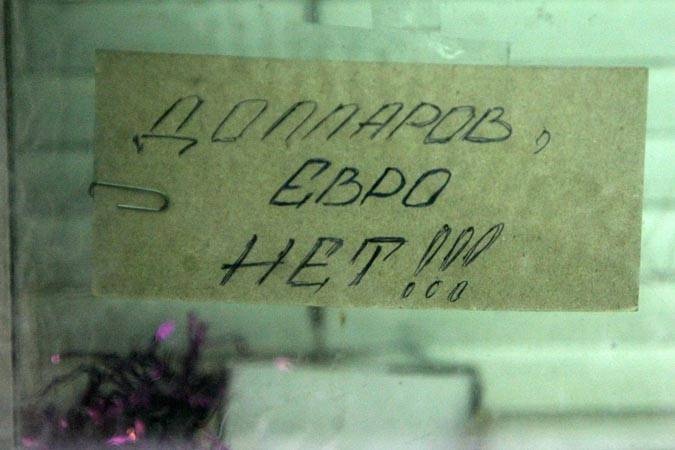 ДОЛЛАРОВ,
ЕВРО
НЕТ!!!